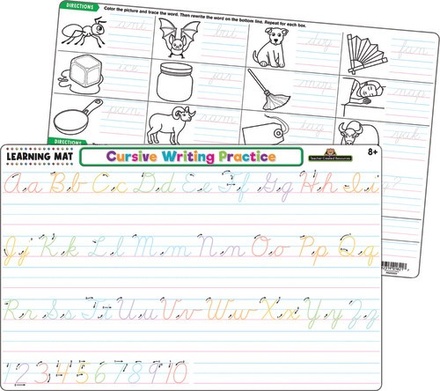 DIRECTIONS Color the picture and trace the word. Then rewrite the word on the bottom line. Repeat for each box.
ant bat dog fan
ice jar mop nap
pan ram tag yak
DIRECTIONS
LEARNING MAT Cursive Writing Practice Teacher Created Resources 8+
Aa Bb Cc Dd Ee Ff Gg Hh Ii
Jj Kk Ll Mm Nn Oo Pp Qq
Rr Ss Tt Uu Vv Ww Xx Yy Zz
1 2 3 4 5 6 7 8 9 10